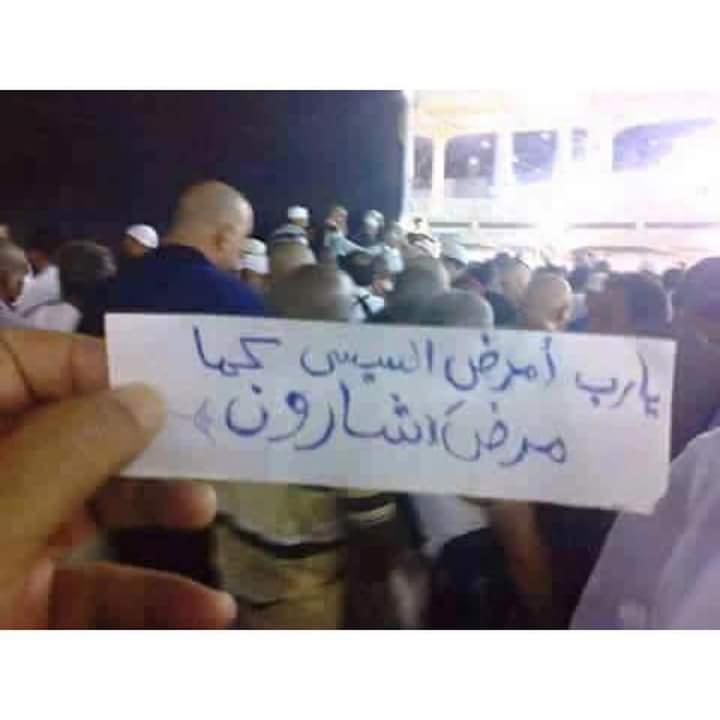 يارب أمرض السيسى كما
مرضَ اشارون